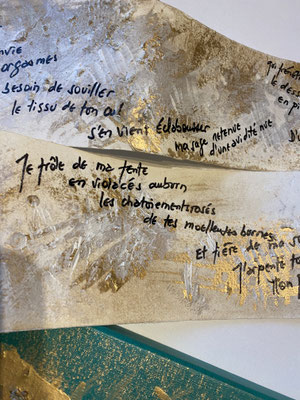 nvie
orgasmes
besoin de souiller
le tissu de ton cul
s'en vient éclabousser
ma rage retenue
d'une avidité nue
le dess
en pi
Je frôle de ma fente
en violacés auburn
les chatoiements rosés
de tes moelleuses bornes
et fière de ma s
J'arpente to
mon